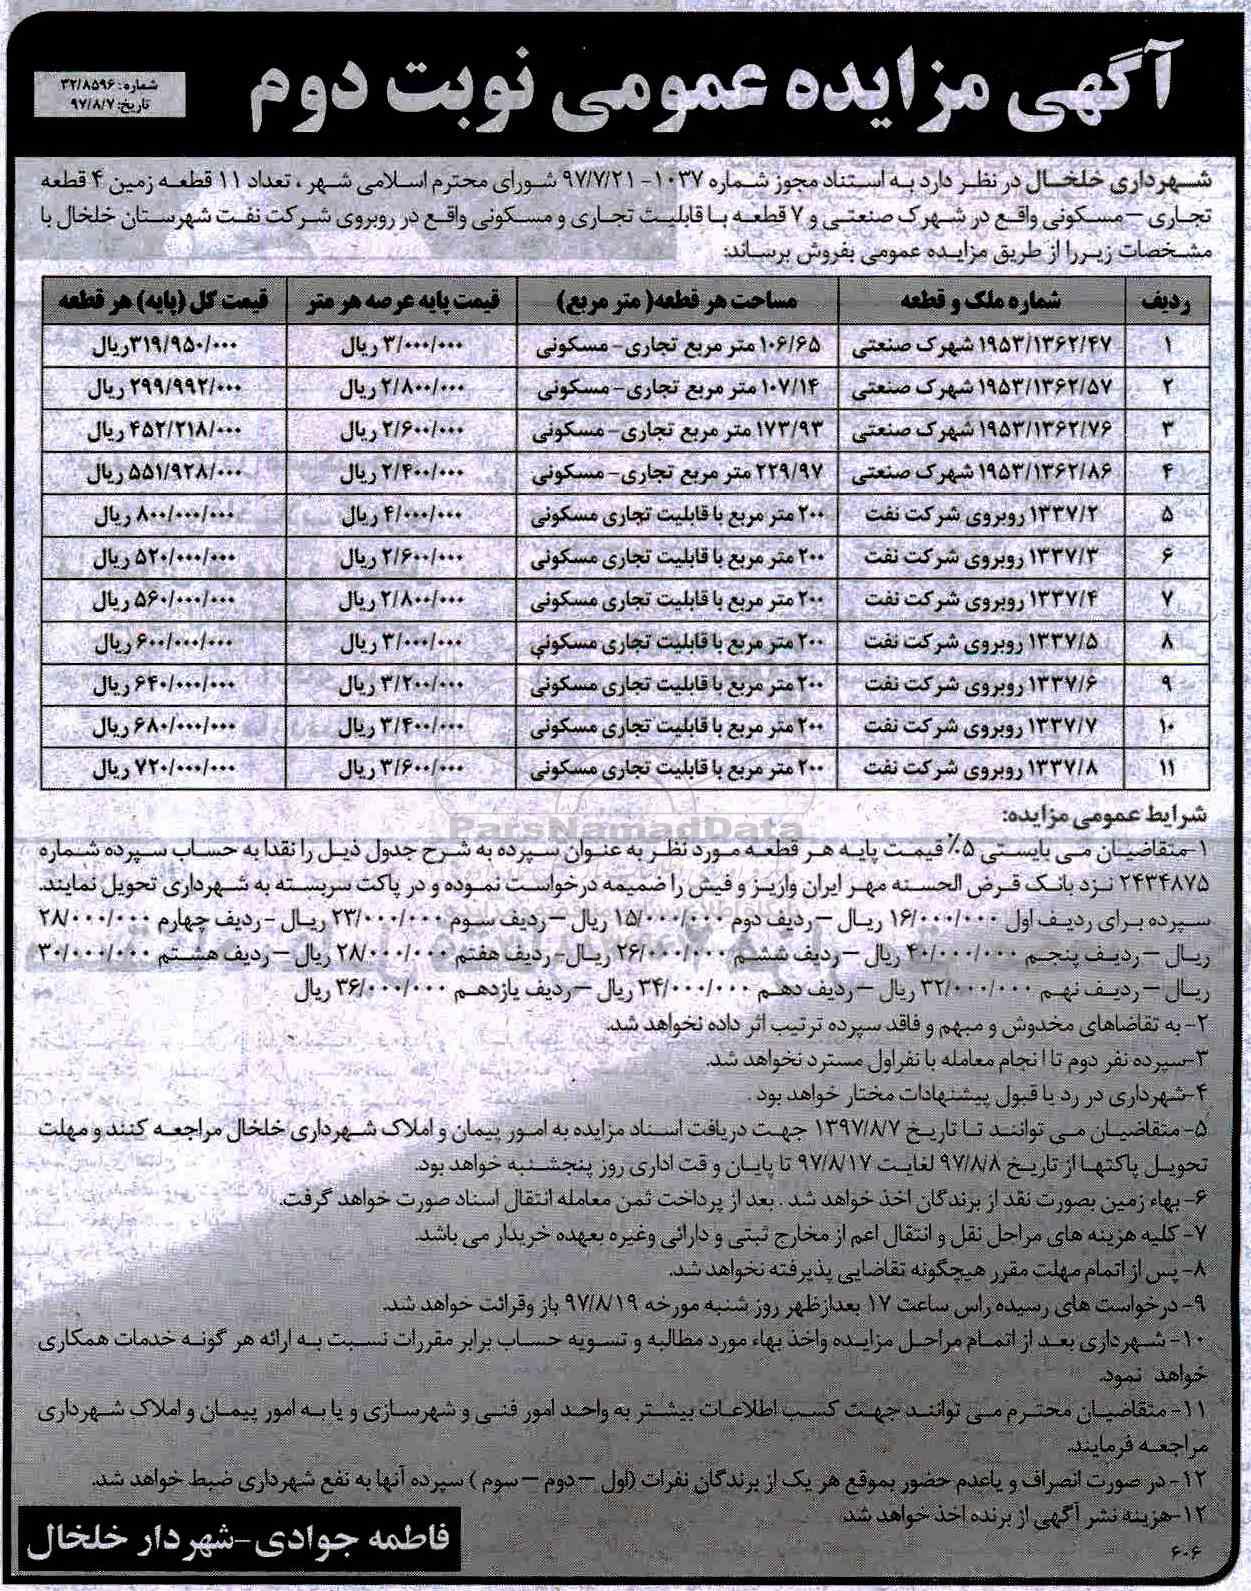 آگهی مزایده عمومی نوبت دوم
شماره: ۳۲/۸۵۹۶
تاریخ: ۹۷/۸/۷
شهرداری خلخال در نظر دارد به استناد مجوز شماره ۱۰۳۷- ۹۷/۷/۲۱ شورای محترم اسلامی شهر، تعداد ۱۱ قطعه زمین ۴ قطعه
تجاری –مسکونی واقع در شهرک صنعتی و ۷ قطعه با قابلیت تجاری و مسکونی واقع در روبروی شرکت نفت شهرستان خلخال با
مشخصات زیر را از طریق مزایده عمومی بفروش برساند:
ردیف شماره ملک و قطعه مساحت هر قطعه( متر مربع) قیمت پایه عرصه هر متر قیمت کل (پایه) هر قطعه
۱ ۱۹۵۳/۱۳۶۲/۴۷ شهرک صنعتی ۱۰۶/۶۵ متر مربع تجاری- مسکونی ۳/۰۰۰/۰۰۰ ریال ۳۱۹/۹۵۰/۰۰۰ریال
۲ ۱۹۵۳/۱۳۶۲/۵۷ شهرک صنعتی ۱۰۷/۱۴ متر مربع تجاری- مسکونی ۲/۸۰۰/۰۰۰ ریال ۲۹۹/۹۹۲/۰۰۰ ریال
۳ ۱۹۵۳/۱۳۶۲/۷۶ شهرک صنعتی ۱۷۳/۹۳ متر مربع تجاری- مسکونی ۲/۶۰۰/۰۰۰ ریال ۴۵۲/۲۱۸/۰۰۰ ریال
۴ ۱۹۵۳/۱۳۶۲/۸۶ شهرک صنعتی ۲۲۹/۹۷ متر مربع تجاری- مسکونی ۲/۴۰۰/۰۰۰ ریال ۵۵۱/۹۲۸/۰۰۰ ریال
۵ ۱۳۳۷/۲ روبروی شرکت نفت ۲۰۰ متر مربع با قابلیت تجاری مسکونی ۴/۰۰۰/۰۰۰ ریال ۸۰۰/۰۰۰/۰۰۰ ریال
۶ ۱۳۳۷/۳ روبروی شرکت نفت ۲۰۰ متر مربع با قابلیت تجاری مسکونی ۲/۶۰۰/۰۰۰ ریال ۵۲۰/۰۰۰/۰۰۰ ریال
۷ ۱۳۳۷/۴ روبروی شرکت نفت ۲۰۰ متر مربع با قابلیت تجاری مسکونی ۲/۸۰۰/۰۰۰ ریال ۵۶۰/۰۰۰/۰۰۰ ریال
۸ ۱۳۳۷/۵ روبروی شرکت نفت ۲۰۰ متر مربع با قابلیت تجاری مسکونی ۳/۰۰۰/۰۰۰ ریال ۶۰۰/۰۰۰/۰۰۰ ریال
۹ ۱۳۳۷/۶ روبروی شرکت نفت ۲۰۰ متر مربع با قابلیت تجاری مسکونی ۳/۲۰۰/۰۰۰ ریال ۶۴۰/۰۰۰/۰۰۰ ریال
۱۰ ۱۳۳۷/۷ روبروی شرکت نفت ۲۰۰ متر مربع با قابلیت تجاری مسکونی ۳/۴۰۰/۰۰۰ ریال ۶۸۰/۰۰۰/۰۰۰ ریال
۱۱ ۱۳۳۷/۸ روبروی شرکت نفت ۲۰۰ متر مربع با قابلیت تجاری مسکونی ۳/۶۰۰/۰۰۰ ریال ۷۲۰/۰۰۰/۰۰۰ ریال
شرایط عمومی مزایده:
ParsNamadData
۱-متقاضیان می بایستی ۵٪ قیمت پایه هر قطعه مورد نظر به عنوان سپرده به شرح جدول ذیل را نقدا به حساب سپرده شماره
۲۴۳۴۸۷۵ نزد بانک قرض الحسنه مهر ایران واریز و فیش را ضمیمه درخواست نموده و در پاکت سربسته به شهرداری تحویل نمایند.
سپرده برای ردیف اول ۱۶/۰۰۰/۰۰۰ ریال –ردیف دوم ۱۵/۰۰۰/۰۰۰ ریال –ردیف سوم ۲۳/۰۰۰/۰۰۰ ریال -ردیف چهارم ۲۸/۰۰۰/۰۰۰
ریال –ردیف پنجم ۴۰/۰۰۰/۰۰۰ ریال –ردیف ششم ۲۶/۰۰۰/۰۰۰ ریال- ردیف هفتم ۲۸/۰۰۰/۰۰۰ ریال –ردیف هشتم ۳۰/۰۰۰/۰۰۰
ریال –ردیف نهم ۳۲/۰۰۰/۰۰۰ ریال –ردیف دهم ۳۴/۰۰۰/۰۰۰ ریال –ردیف یازدهم ۳۶/۰۰۰/۰۰۰ ریال
۲- به تقاضاهای مخدوش و مبهم و فاقد سپرده ترتیب اثر داده نخواهد شد.
۳-سپرده نفر دوم تا انجام معامله با نفراول مسترد نخواهد شد.
۴-شهرداری در رد یا قبول پیشنهادات مختار خواهد بود .
۵- متقاضیان می توانند تا تاریخ ۱۳۹۷/۸/۷ جهت دریافت اسناد مزایده به امور پیمان و املاک شهرداری خلخال مراجعه کنند و مهلت
تحویل پاکتها از تاریخ ۹۷/۸/۸ لغایت ۹۷/۸/۱۷ تا پایان وقت اداری روز پنجشنبه خواهد بود.
۶- بهاء زمین بصورت نقد از برندگان اخذ خواهد شد . بعد از پرداخت ثمن معامله انتقال اسناد صورت خواهد گرفت.
۷- کلیه هزینه های مراحل نقل و انتقال اعم از مخارج ثبتی و دارائی وغیره بعهده خریدار می باشد.
۸- پس از اتمام مهلت مقرر هیچگونه تقاضایی پذیرفته نخواهد شد.
۹- درخواست های رسیده راس ساعت ۱۷ بعدازظهر روز شنبه مورخه ۹۷/۸/۱۹ باز وقرائت خواهد شد.
۱۰- شهرداری بعد از اتمام مراحل مزایده واخذ بهاء مورد مطالبه و تسویه حساب برابر مقررات نسبت به ارائه هر گونه خدمات همکاری
خواهد نمود.
۱۱- متقاضیان محترم می توانند جهت کسب اطلاعات بیشتر به واحد امور فنی و شهرسازی و یا به امور پیمان و املاک شهرداری
مراجعه فرمایند.
۱۲- در صورت انصراف و یاعدم حضور بموقع هر یک از برندگان نفرات (اول –دوم –سوم ) سپرده آنها به نفع شهرداری ضبط خواهد شد.
۱۲-هزینه نشر آگهی از برنده اخذ خواهد شد.
فاطمه جوادی-شهردار خلخال
۶۰۶